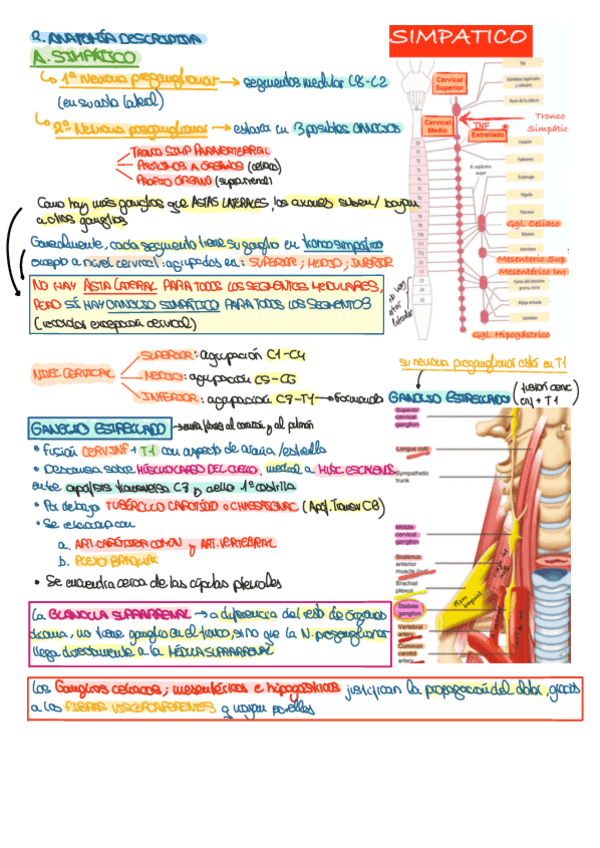 2. ANATOMÍA DESCRIPTIVA
A. SIMPÁTICO
1ª Neurona preganglionar → segmentos medular C8-L2
(en su asta lateral)
2ª Neurona preganglionar → estará en 3 posibles GANGLIOS
TRONCO SIMP PARAVERTEBRAL
PRÓXIMOS A ÓRGANOS (celíaco)
PROPIO ÓRGANO (suprarrenal)
Como hay más ganglios que ASTAS LATERALES, los axones suben/bajan
a otros ganglios
Generalmente, cada segmento tiene su ganglio en tronco simpático
excepto a nivel cervical: agrupados en: SUPERIOR; MEDIO; INFERIOR
NO HAY ASTA LATERAL PARA TODOS LOS SEGMENTOS MEDULARES,
PERO SÍ HAY GANGLIO SIMPÁTICO PARA TODOS LOS SEGMENTOS
(recordar excepción cervical)
SIMPATICO
Cervical
Superior
Cervical
Medio
INF
Estrellado
Tronco
Simpátic
Ggl. Celiaco
Mesenterio Sup
Mesentérico Inf
Ggl. Hipogástrico
NIVEL CERVICAL
SUPERIOR: agrupación C1-C4
MEDIO: agrupación C5-C6
INFERIOR: agrupación C7-T1 → Formando GANGLIO ESTRELLADO
su neurona preganglionar está en T1
GANGLIO ESTRELLADO → envía fibras al corazón y al pulmón
• Fusión CERV INF + T1 con aspecto de araña/estrella
• Descansa sobre MÚSCULO LARGO DEL CUELLO, medial a MÚSC ESCALENOS
entre apófisis transversa C7 y cuello 1ª costilla
• Por debajo TUBÉRCULO CAROTÍDEO o CHASSAIGNAC (Apóf. Transv C6)
• Se relaciona con
a. ART. CARÓTIDA COMÚN y ART. VERTEBRAL
b. PLEXO BRAQUIAL
• Se encuentra cerca de las cúpulas pleurales
Superior
cervical
ganglion
Longus coli
Sympathetic
trunk
Middle
cervical
ganglion
Scalenus
anterior
muscle (cut)
Brachial
plexus
Stellate
ganglion
Vertebral
artery
Common
carotid
artery
La GLÁNDULA SUPRARRENAL → a diferencia del resto de órganos
diana, no tiene ganglio en el tronco, sino que la N. preganglionar
llega directamente a la MÉDULA SUPRARRENAL
Los Ganglios celíacos; mesentéricos e hipogástricos justifican la propagación del dolor, gracias
a las FIBRAS VISCEROAFERENTES q viajan por ellos